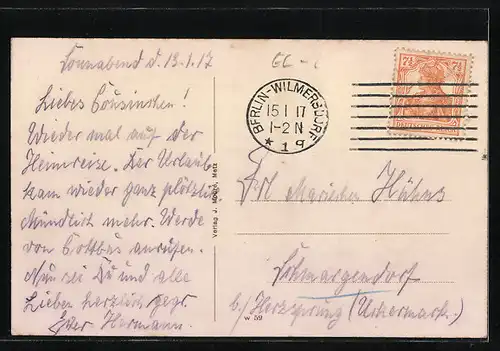 Sonnabend d. 13.1.17
Liebes Cousinchen!
Wieder mal auf der
Heimreise. Der Urlaub
kam wieder ganz plötzlich
Mündlich mehr. Werde
von Cottbus anrufen.
Nun sei Du und alle
Lieben herzlich gegr.
Hermann.
Verlag J. Metz
BERLIN-WILMERSDORF
15.1.17
1-2 N
* 1 g
7½ 7½
Frl. Mariechen Hühns
Schmargendorf
b/ Herzsprung (Uckermark.)
W 59